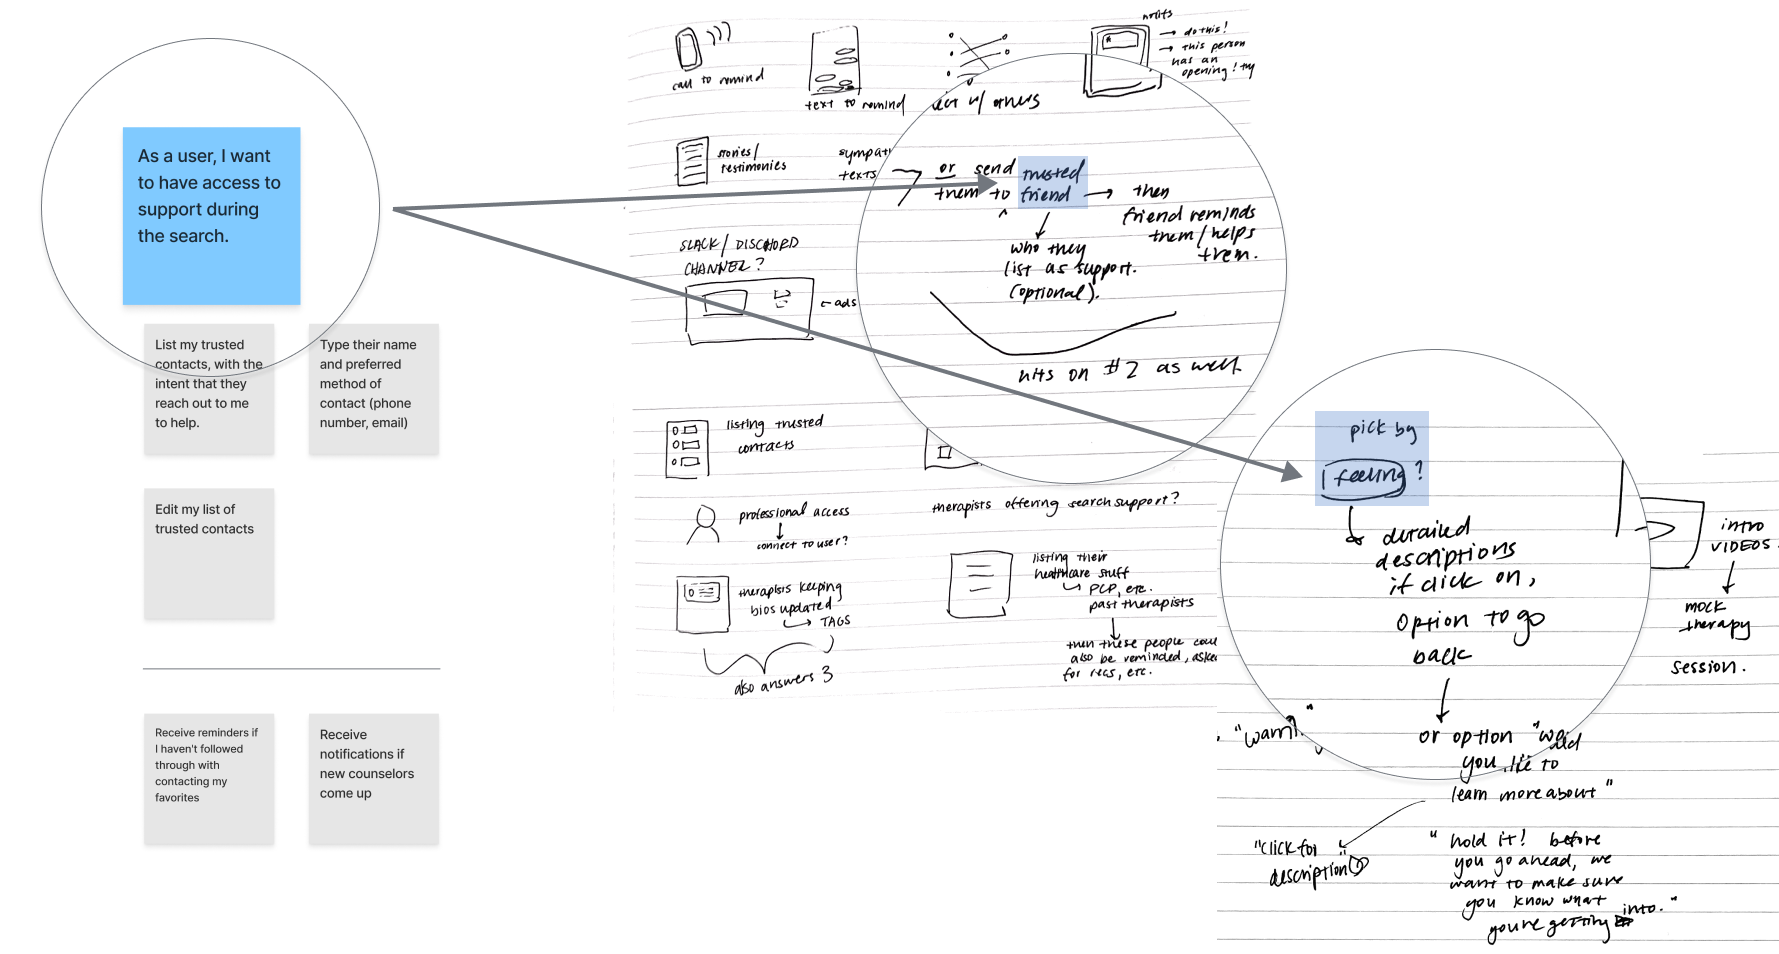 As a user, I want
to have access to
support during
the search.
List my trusted
contacts, with the
intent that they
reach out to me
to help.
Type their name
and preferred
method of
contact (phone
number, email)
Edit my list of
trusted contacts
Receive reminders if
I haven't followed
through with
contacting my
favorites
Receive
notifications if
new counselors
come up
call to remind
text to remind
w/ others
notifs
→ do this!
→ this person
has an
opening! try
stories/
testimonies
texts
or send
them to
trusted
friend
→ then
friend reminds
them/helps
them.
who they
list as support.
(optional).
hits on #2 as well
SLACK/ DISCHORD
CHANNEL?
← ads
listing trusted
contacts
professional access
connect to user?
therapists keeping
bios updated
→ TAGS
also answers 3
therapists offering search support?
listing their
healthcare stuff
→ PCP, etc.
past therapists
then these people
also be reminded,
for recs, etc.
pick by
feeling ?
detailed
descriptions
if click on,
option to go
back
or option "would
you like to
learn more about"
"click for
description"
"hold it! before
you go ahead, we
want to make sure
you know what
you're getting into."
intro
VIDEOS.
mock
therapy
session.